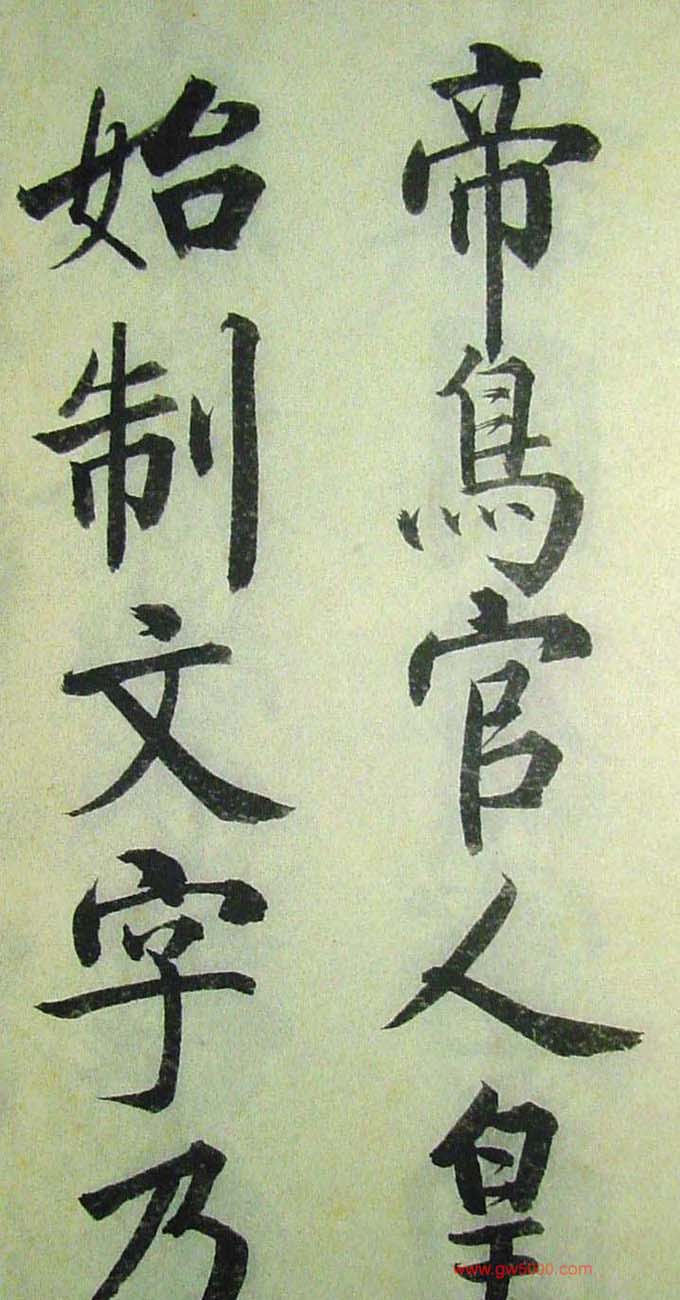 帝鳥官人皇
始制文字乃
www.gw5000.com